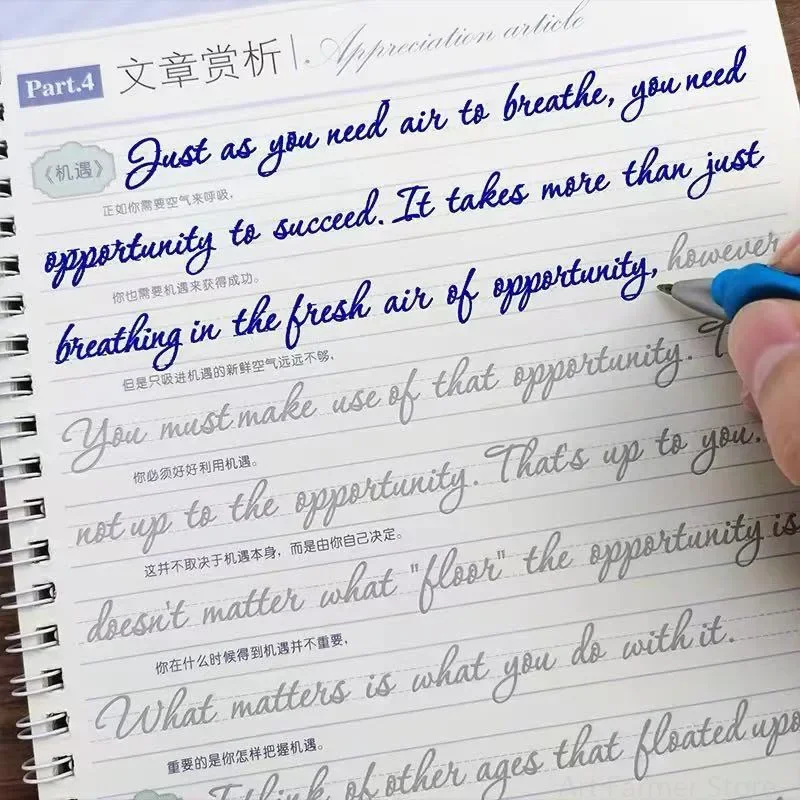 Part.4 文章赏析 Appreciation article
《机遇》 Just as you need air to breathe, you need
正如你需要空气来呼吸，
opportunity to succeed. It takes more than just
你也需要机遇来获得成功。
breathing in the fresh air of opportunity, however
但是只吸进机遇的新鲜空气远远不够，
You must make use of that opportunity. T
你必须好好利用机遇。
not up to the opportunity. That's up to you.
这并不取决于机遇本身，而是由你自己决定。
doesn't matter what "floor" the opportunity is
你在什么时候得到机遇并不重要，
What matters is what you do with it.
重要的是你怎样把握机遇。
think of other ages that floated upo
Art Farmer Store